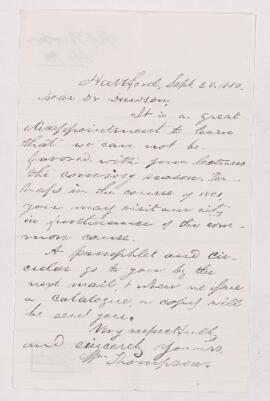 Hartford, Sept. 28. 1880.
Dear Dr Davidson,
It is a great
disappointment to learn
that we can not be
favored with your lectures
the coming season. Per-
haps in the course of 1881,
you may visit our city
in furtherance of the com-
mon cause.
A pamphlet and cir-
cular go to you by the
next mail, & when we issue
a catalogue, a copy will
be sent you.
Very respectfully
and sincerely yours,
Wm Thompson.